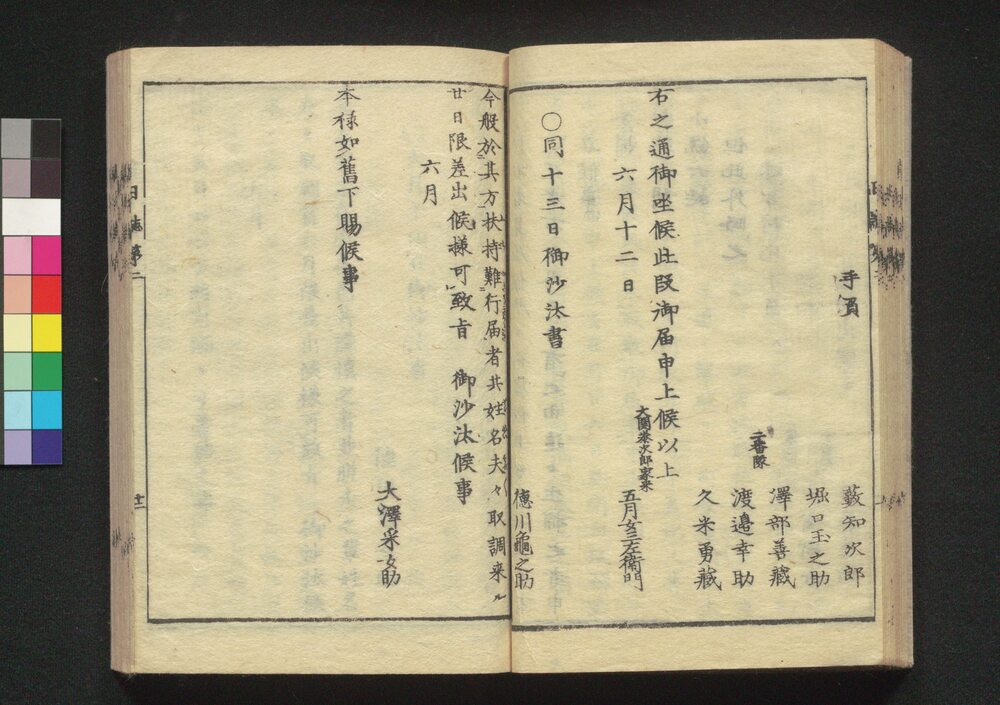 手負
藪知次郎
堀口玉之助
澤部善藏
二番隊
渡邉幸助
久米勇藏
右之通御坐候此段御届申上候以上
大関泰次郎家来
六月十二日
五月女三左衛門
〇同十三日御沙汰書
徳川龜之助
今般於其方扶持難行届者共姓名夫々取調来ル
廿日限差出候様可致旨 御沙汰候事
六月
大澤采女助
本祿如舊下賜候事
日誌第二
十二